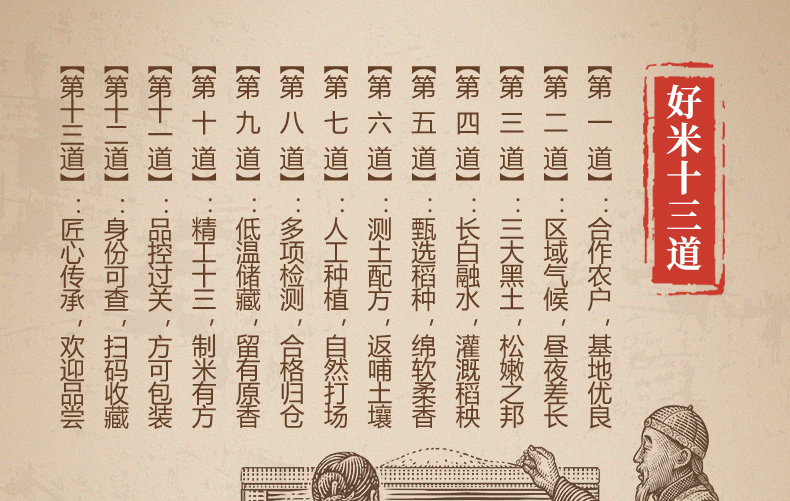 好米十三道
【第一道】：合作农户，基地优良
【第二道】：区域气候，昼夜差长
【第三道】：三大黑土，松嫩之邦
【第四道】：长白融水，灌溉稻秧
【第五道】：甄选稻种，绵软柔香
【第六道】：测土配方，返哺土壤
【第七道】：人工种植，自然打场
【第八道】：多项检测，合格归仓
【第九道】：低温储藏，留有原香
【第十道】：精工十三，制米有方
【第十一道】：品控过关，方可包装
【第十二道】：身份可查，扫码收藏
【第十三道】：匠心传承，欢迎品尝